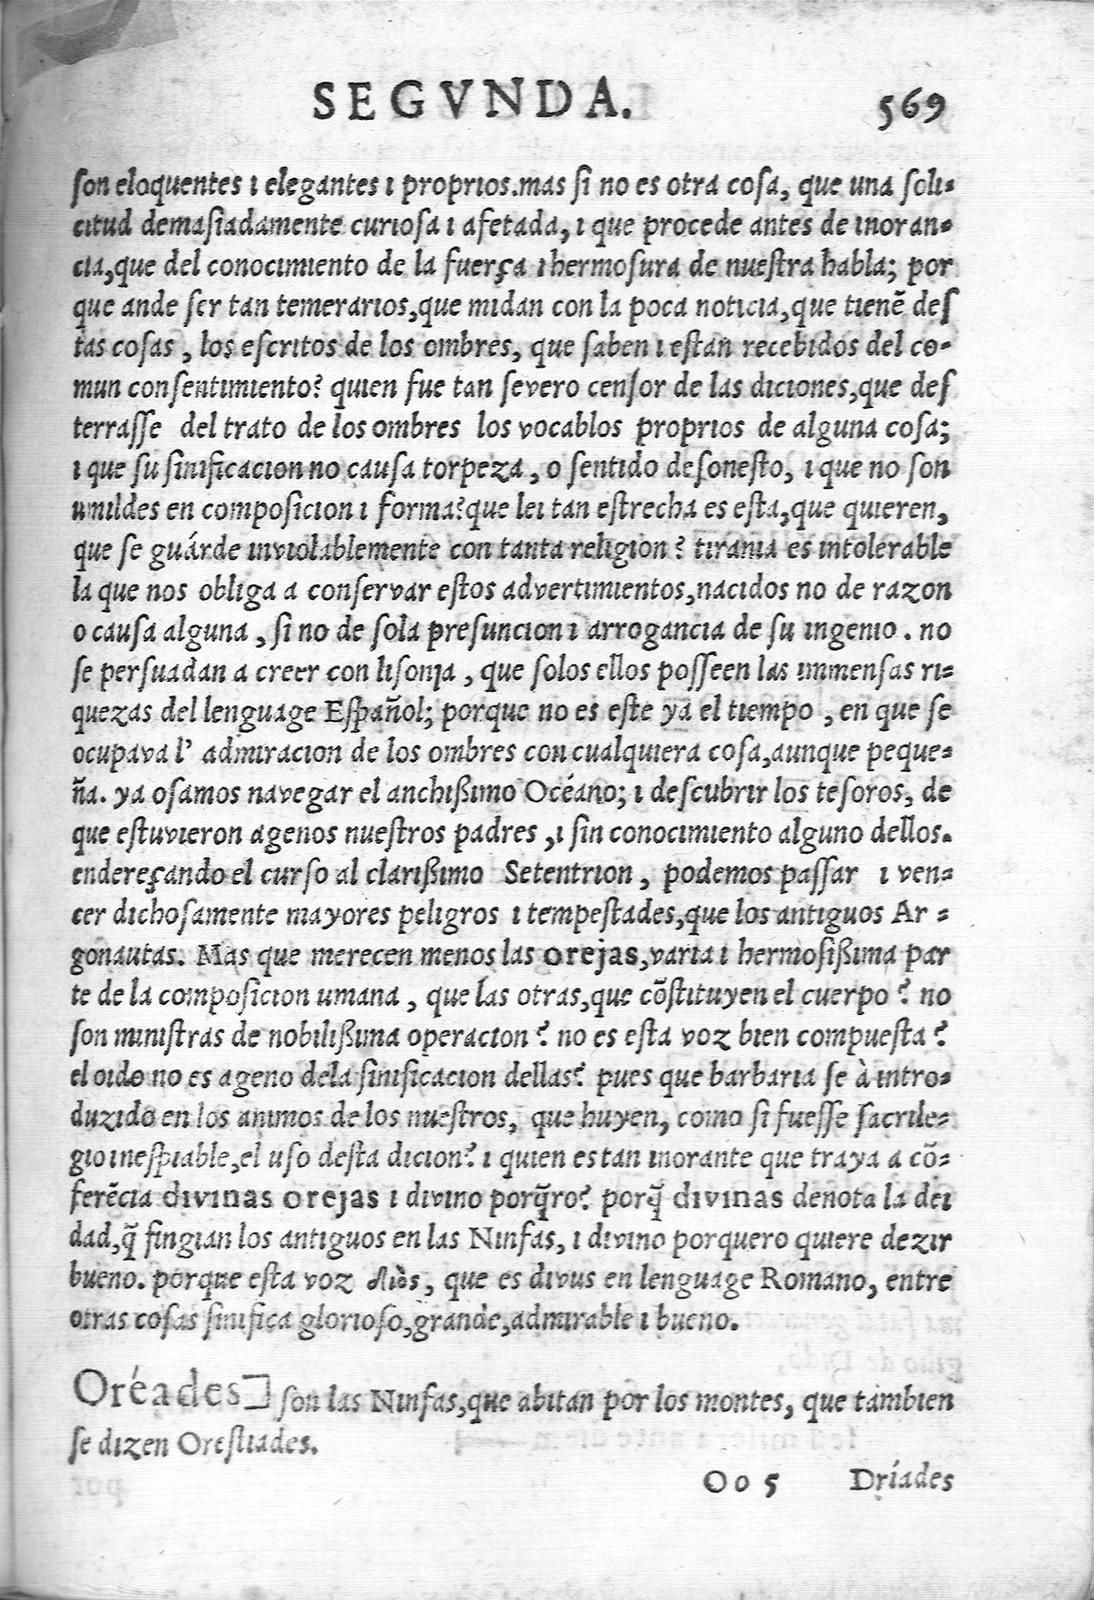 SEGVNDA. 569
ſon eloquentes ı elegantes ı proprıos.mas ſi no es otra coſa, que una ſolı=
cıtud demaſiadamente curıoſa ı afetada, ı que procede antes de ınoran=
cıa,que del conocımıento de la fuerça ıhermoſura de nueſtra habla; por
que ande ſer tan temerarıos,que mıdan con la poca notıcıa,que tıenē deſ
tas coſas, los eſcrıtos de los ombres, que ſaben ı eſtan recebıdos del co=
mun conſentımıento? quıen fue tan ſevero cenſor de las dıcıones,que deſ
terraſſe del trato de los ombres los vocablos proprıos de alguna coſa;
ı que ſu ſinıficacıon no cauſa torpeza, o ſentıdo deſoneſto, ı que no ſon
umıldes en compoſicıon ı forma?que leı tan eſtrecha es eſta,que quıeren,
que ſe guárde ınvıolablemente con tanta relıgıon? tıranıa es ıntolerable
la que nos oblıga a conſervar eſtos advertımıentos,nacıdos no de razon
o cauſa alguna, ſi no de ſola preſuncıon ı arrogancıa de ſu ıngenıo. no
ſe perſuadan a creer con lıſonja, que ſolos ellos poſſeen las ımmenſas rı=
quezas del lenguage Eſpañol; porque no es eſte yá el tıempo, en que ſe
ocupava l' admıracıon de los ombres con cualquıera coſa,aunque peque=
ña. ya oſamos navegar el anchißımo Océano; ı deſcubrır los teſoros, de
que eſtuvıeron agenos nueſtros padres, ı ſin conocımıento alguno dellos.
endereçando el curſo al clarıßımo Setentrıon, podemos paſſar ı ven=
cer dıchoſamente mayores pelıgros ı tempeſtades,que los antıguos Ar=
gonautas. Mas que merecen menos las orejas,varıa ı hermoſißıma par
te de la compoſicıon umana, que las otras,que cōſtıtuyen el cuerpo? no
ſon mınıſtras de nobılıßıma operacıon? no es eſta voz bıen compueſta?
el oıdo no es ageno dela ſinıficacıon dellas? pues que barbarıa ſe à ıntro=
duzıdo en los anımos de los nueſtros, que huyen, como ſi fueſſe ſacrıle=
gıo ıneſpıable,el uſo deſta dıcıon? ı quıen es tan ınorante que traya a cō=
ferēcıa dıvınas orejas ı dıvıno porq̄ro? porq̄ dıvınas denota la deı
dad,q̄ fıngıan los antıguos en las Nınfas, ı dıvıno porquero quıere dezır
bueno. porque eſta voz δῖος, que es dıvus en lenguage Romano, entre
otras coſas ſinıfıca glorıoſo,grande,admırable ı bueno.
Oréades] ſon las Nınfas,que abıtan por los montes, que tambıen
ſe dızen Oreſtıades.
Oo 5 Dríades